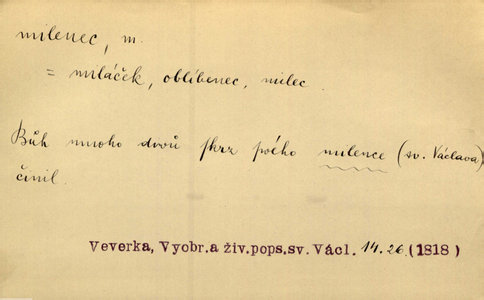 milenec, m.
= miláček, oblíbenec, milec.
Bůh mnoho divů skrz svého milence (sv. Václava)
činil.
Veverka, Vyobr. a živ. pops. sv. Václ. 14. 26. (1818)